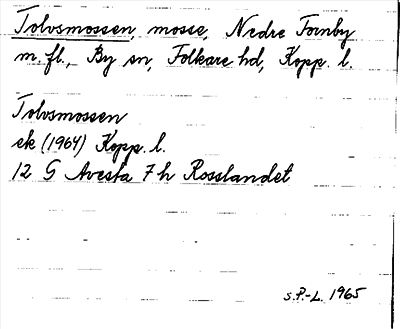 Tolvsmossen, mosse, Nedre Fornby
m.fl., By sn, Folkare hd, Kopp. l.
Tolvsmossen
ek (1964) Kopp. l.
12 G Avesta 7 h Rosslandet
S.P.-L. 1965